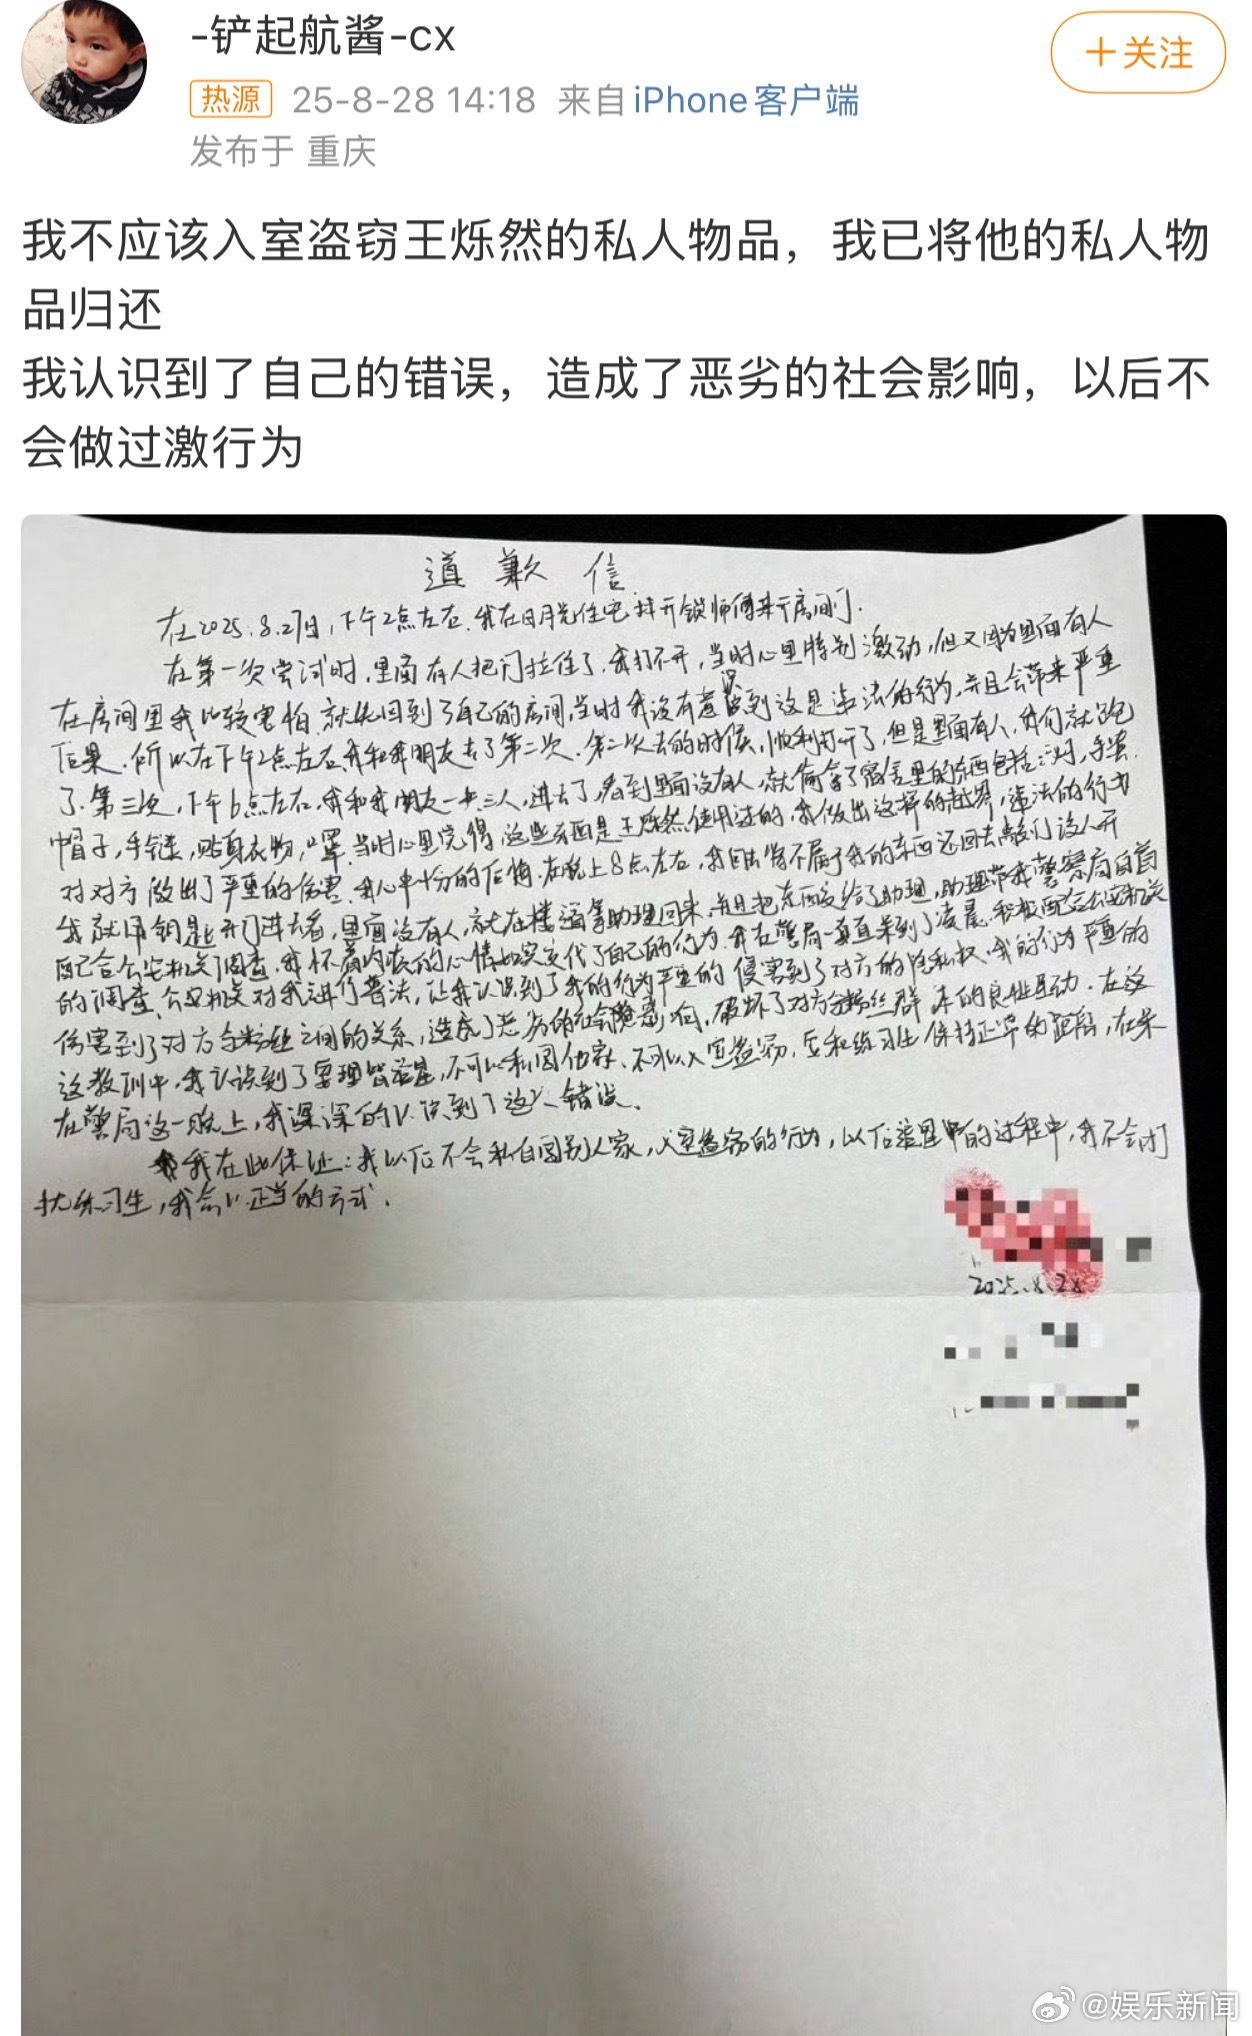 -铲起航酱-cx
+关注
热源 25-8-28 14:18 来自 iPhone客户端
发布于 重庆
我不应该入室盗窃王烁然的私人物品，我已将他的私人物
品归还
我认识到了自己的错误，造成了恶劣的社会影响，以后不
会做过激行为
道歉信
在2025.8.27日，下午2点左右，我在日月光住宅，找开锁师傅来开房间门.
在第一次尝试时，里面有人把门拉住了，我打不开，当时心里特别激动，但又因为里面有人
在房间里我比较害怕，就先回到了自己的房间，当时我没有意识到这是违法的行为，并且会带来严重
后果，所以在下午2点左右，我和我朋友去了第二次，第二次去的时候，顺利打开了，但是里面有人，我们就跑
了.第三次，下午6点左右，我和我朋友一共三人，进去了，看到里面没有人，就偷拿了宿舍里的东西包括
帽子，手链，贴身衣物，口罩，当时心里觉得，这些东西是王烁然使用过的，我做出这样的越界，违法的行为
对对方做出了严重的伤害，我心中十份的后悔，在晚上8点左右，我回去将不属于我的东西还回去
我就用钥匙开门进去看，里面没有人，就在楼道等助理回来，并且把东西交给了助理，助理带我警察局自首
配合公安机关调查，我怀着内疚的心情如实交代了自己的行为，我在警局一直呆到了凌晨，积极配合公安机关
的调查，公安机关对我进行普法，让我认识到了我的行为严重的侵害到了对方的隐私权，我的行为严重的
伤害到了对方与粉丝之间的关系，造成了恶劣的社会影响，破坏了对方与粉丝群体的良性互动，在这
这教训中，我认识到了要理智追星，不可以私闯他家，不可以入室盗窃，应和练习生保持正常的距离，在呆
在警局这一晚上，我深深的认识到了这个错误.
我在此保证：我以后不会私自闯别人家，入室盗窃的行为，以后追星中的过程中，我不会打
扰练习生，我会以正当的方式.
2025.8.28
@娱乐新闻